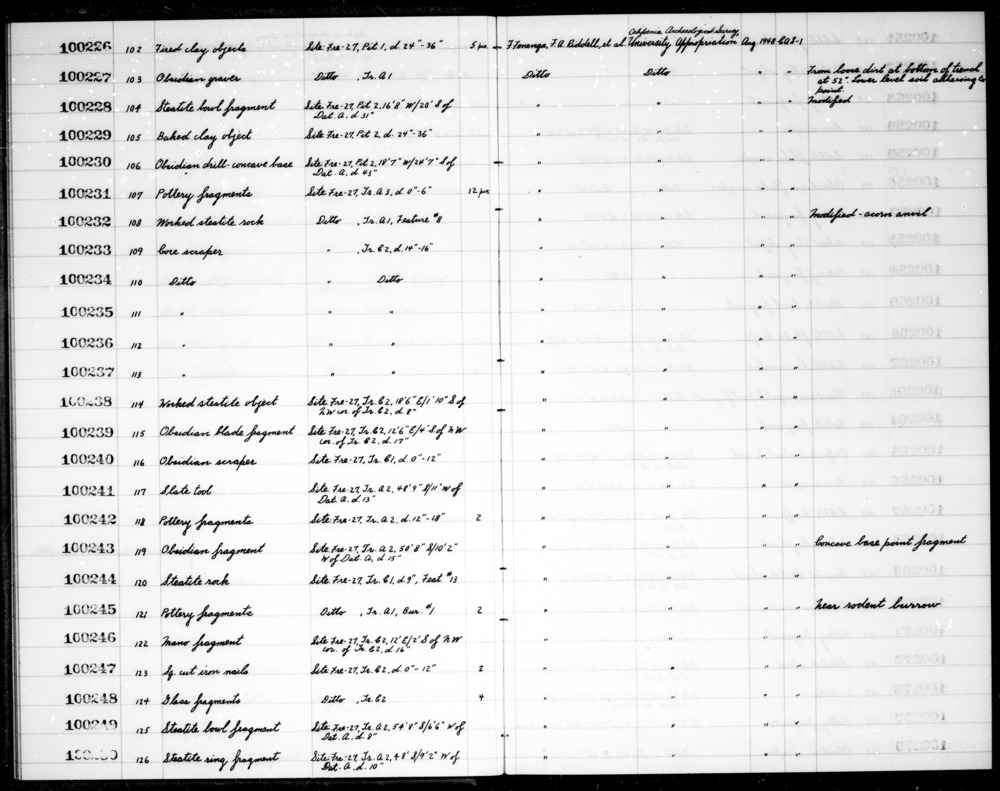 California Archaeological Survey
100226 102 Fired clay objects Site Fre-27, Pit 1, d. 24"-36" 5 pcs F. Fenenga, F.A. Riddell, et al. University Appropriation Aug 1948 CAS-1
100227 103 Obsidian graver Ditto , Tr. A1 Ditto Ditto " " From loose dirt at bottom of trench
at 52". Lower level soil adhering to
point.
100228 104 Steatite bowl fragment Site Fre-27, Pit 2, 16'8" W/20' S of " " " " Modified
Dat. A, d. 31"
100229 105 Baked clay object Site Fre-27, Pit 2, d. 24"-36" " " " "
100230 106 Obsidian drill-concave base Site Fre-27, Pit 2, 18'7" W/24'7" S of " " " "
Dat. A, d. 43"
100231 107 Pottery fragments Site Fre-27, Tr. A3, d. 0"-6" 12 pcs " " " "
100232 108 Worked steatite rock Ditto , Tr. A1, Feature #8 " " " " Modified - acorn anvil
100233 109 Core scraper " , Tr. C2, d. 14"-16" " " " "
100234 110 Ditto " Ditto " " " "
100235 111 " " " " " " "
100236 112 " " " " " " "
100237 113 " " " " " " "
100238 114 Worked steatite object Site Fre-27, Tr. C2, 18'6" E/1'10" S of " " " "
NW cor. of Tr. C2, d. 8"
100239 115 Obsidian blade fragment Site Fre-27, Tr. C2, 12'6" E/4' S of NW " " " "
cor. of Tr. C2, d. 17"
100240 116 Obsidian scraper Site Fre-27, Tr. C1, d. 0"-12" " " " "
100241 117 Slate tool Site Fre-27, Tr. A2, 48'9" S/11' W of " " " "
Dat. A, d. 13"
100242 118 Pottery fragments Site Fre-27, Tr. A2, d. 12"-18" 2 " " " "
100243 119 Obsidian fragment Site Fre-27, Tr. A2, 50'8" S/10'2" " " " " Concave base point fragment
W of Dat. A, d. 15"
100244 120 Steatite rock Site Fre-27, Tr. C1, d. 9", Feat. #13 " " " "
100245 121 Pottery fragments Ditto , Tr. A1, Bur. #1 2 " " " " Near rodent burrow
100246 122 Mano fragment Site Fre-27, Tr. C2, 12' E/2' S of NW " " " "
cor. of Tr. C2, d. 16"
100247 123 Sq. cut iron nails Site Fre-27, Tr. C2, d. 0"-12" 2 " " " "
100248 124 Glass fragments Ditto , Tr. C2 4 " " " "
100249 125 Steatite bowl fragment Site Fre-27, Tr. A2, 54'8" S/6'6" W of " " " "
Dat. A, d. 8"
100250 126 Steatite ring fragment Site Fre-27, Tr. A2, 48' S/9'2" W of " " " "
Dat. A, d. 10"